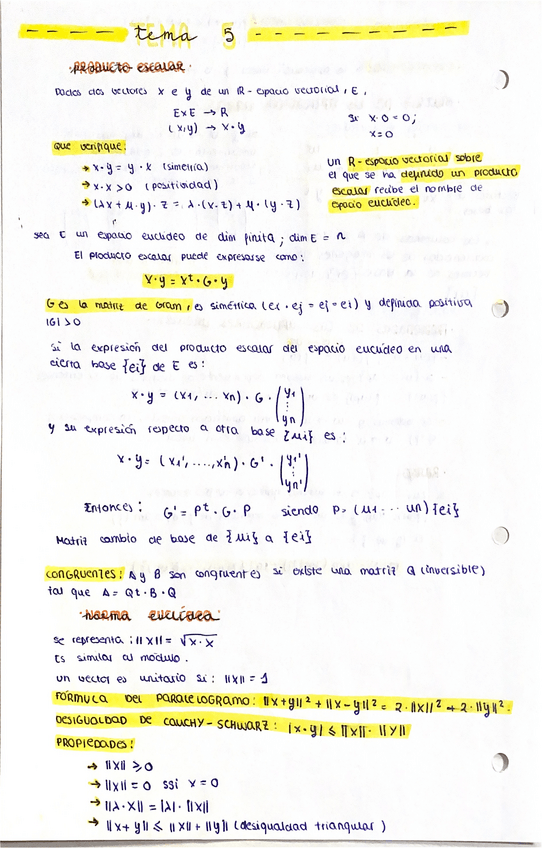 tema 5
PRODUCTO ESCALAR
Dados dos vectores x e y de un R-espacio vectorial, E,
E×E → R
(x,y) → x·y
Si x·0=0;
x=0
que verifique:
→ x·y = y·x (simetría)
→ x·x >0 (positividad)
→ (λx+μ·y)·z = λ·(x·z)+μ·(y·z)
un R-espacio vectorial sobre
el que se ha definido un producto
escalar recibe el nombre de
espacio euclídeo.
sea E un espacio euclídeo de dim finita; dim E = n
El producto escalar puede expresarse como:
x·y = xᵗ·G·y
G es la matriz de Gram, es simétrica (ei·ej = ej=ei) y definida positiva
|G| >0
Si la expresión del producto escalar del espacio euclídeo en una
cierta base {ei} de E es:
x·y = (x1, ... xn) · G · (y1 ⋮ yn)
y su expresión respecto a otra base {ui} es:
x·y = (x1', ...., x'n) · G' · (y1' ⋮ yn')
Entonces: G' = Pᵗ·G·P siendo P=(u1 ... un){ei}
Matriz cambio de base de {ui} a {ei}
CONGRUENTES: A y B son congruentes si existe una matriz Q (inversible)
tal que A= Qt·B·Q
Norma euclídea
se representa: ||x|| = √x·x
Es similar al módulo.
un vector es unitario si: ||x|| = 1
FÓRMULA DEL PARALELOGRAMO: ||x+y||² + ||x-y||² = 2·||x||² + 2·||y||².
DESIGUALDAD DE CAUCHY-SCHWARZ: |x·y| ≤ ||x||·||y||
PROPIEDADES:
→ ||x|| ≥0
→ ||x|| = 0 ssi x=0
→ ||λ·x|| = |λ|·||x||
→ ||x+y|| ≤ ||x||+||y|| (desigualdad triangular)